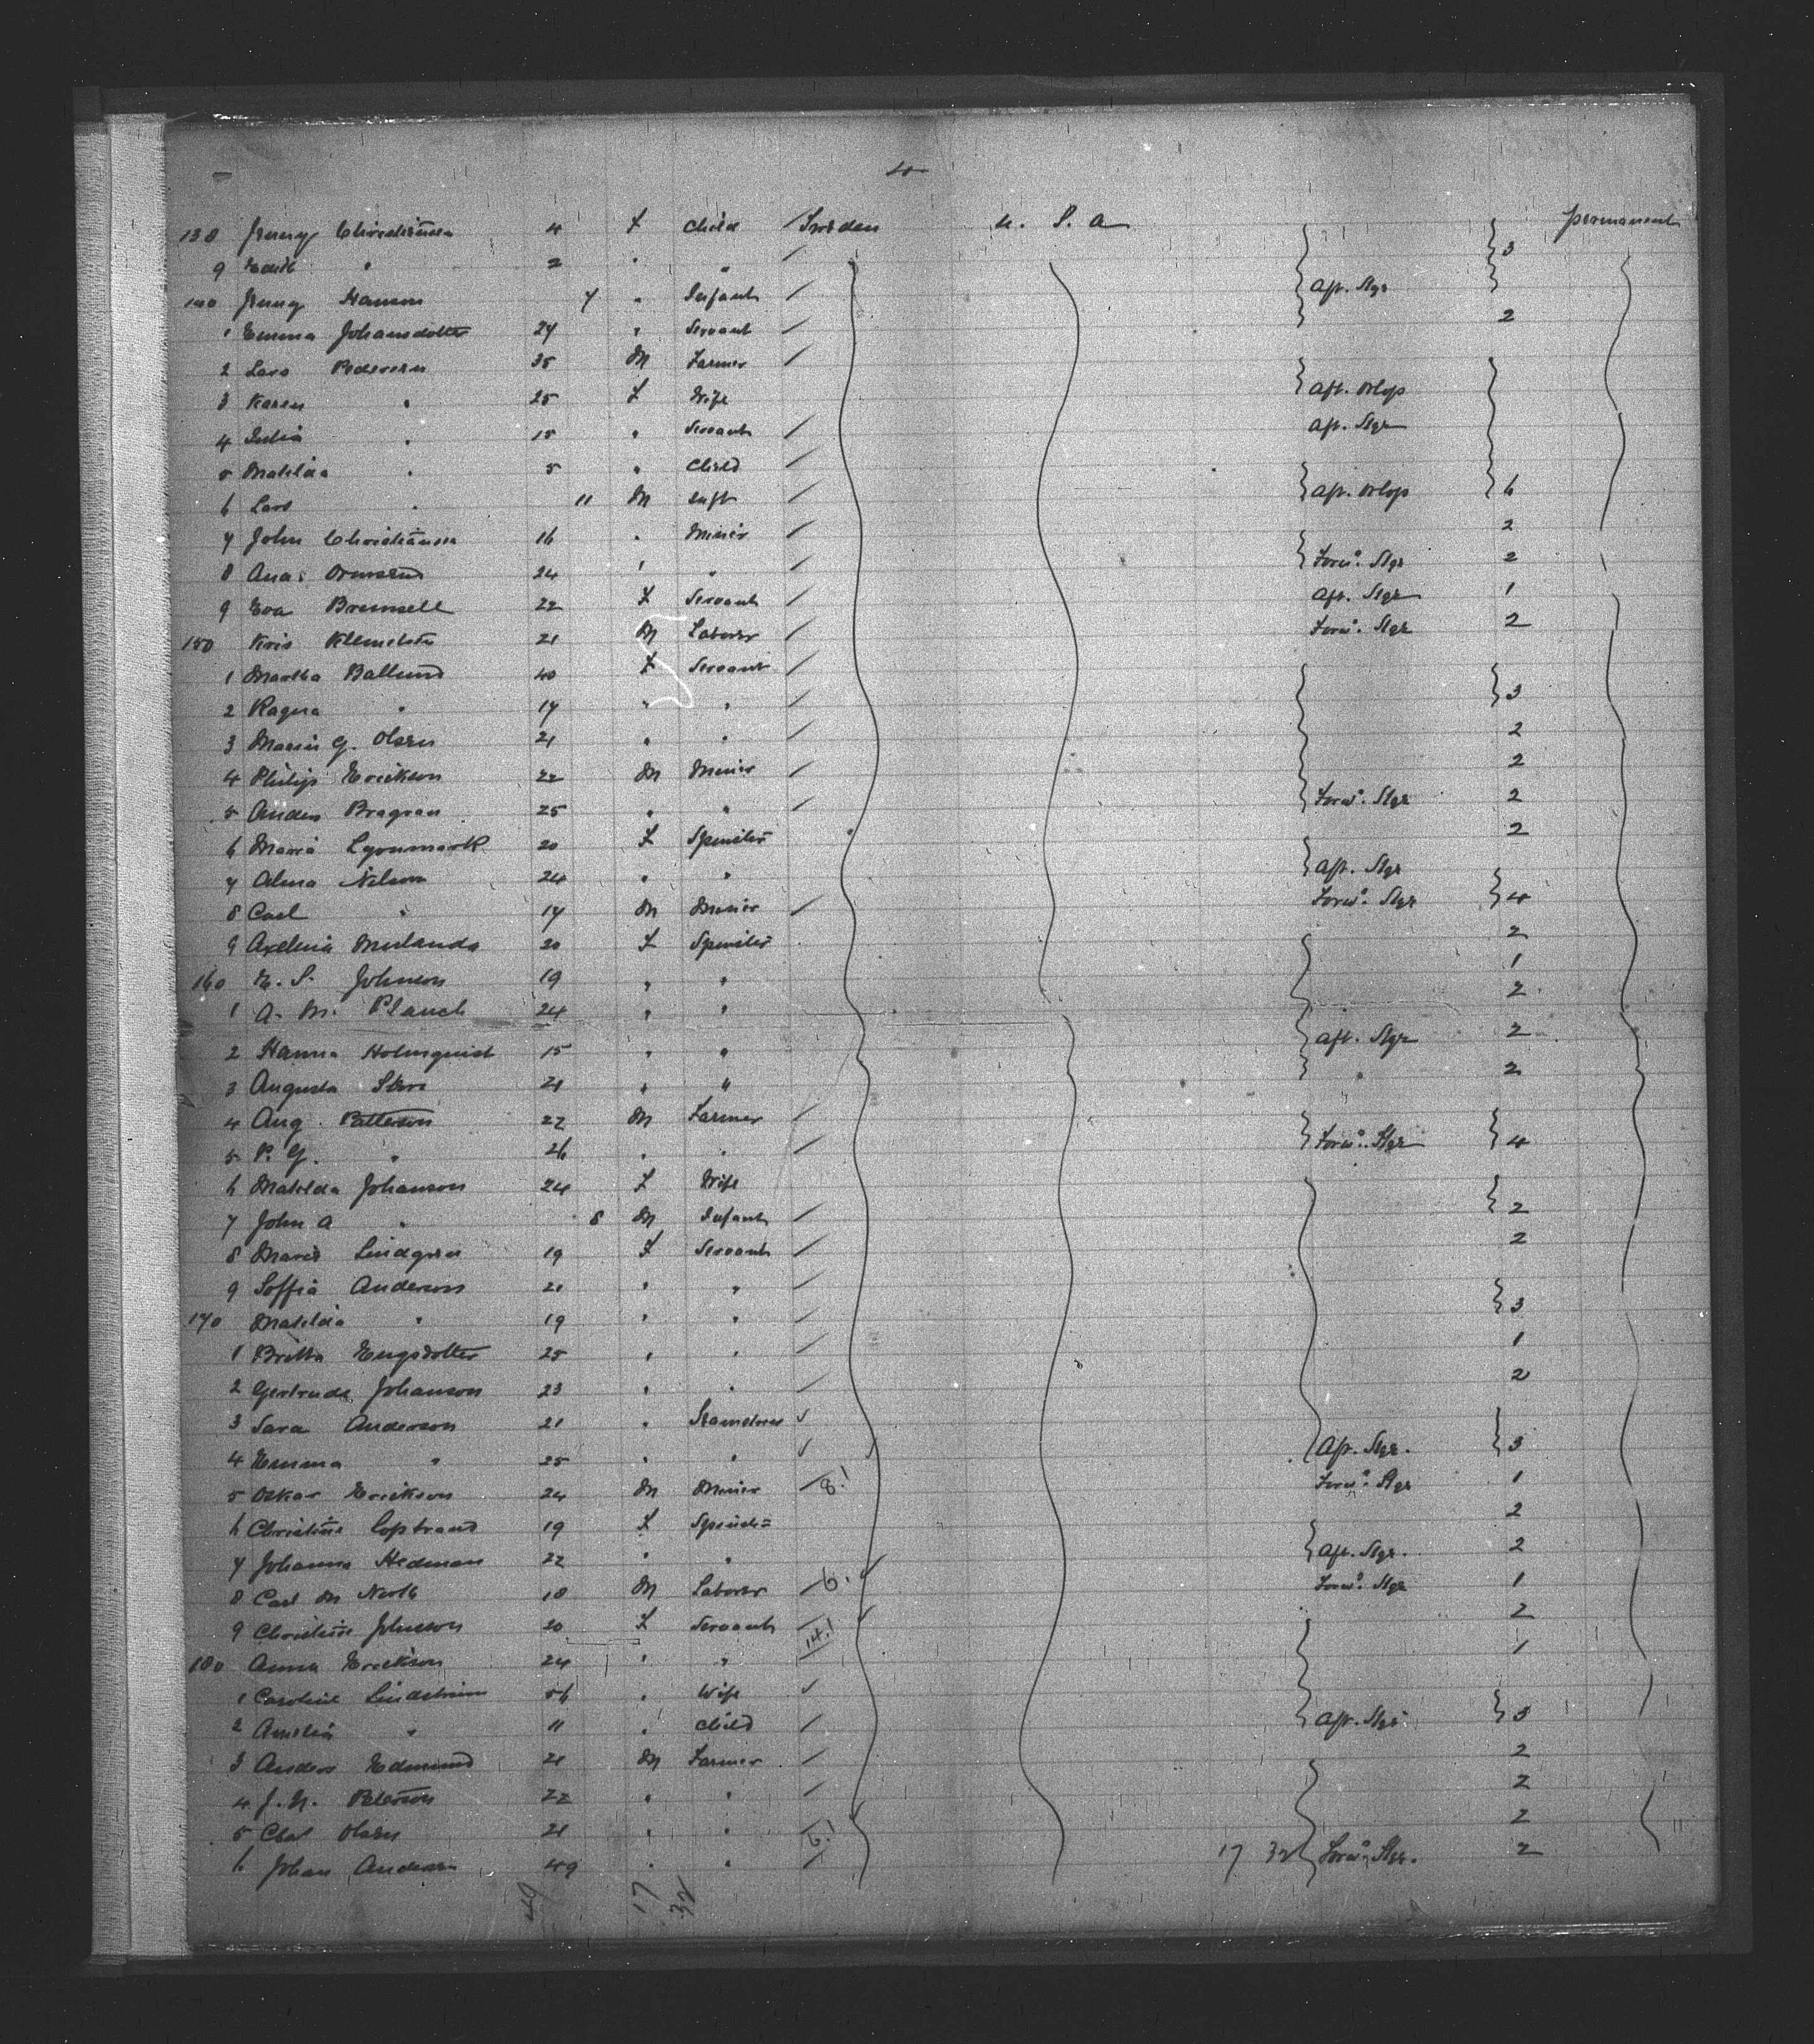 4
138 Jenny Christiansen 4 F Child Sweden U. S. A 3 permanent
9 Edith " 2 " "
140 Jenny Hanson 7 " Infant Aft. Stge
1 Emma Johansdotter 24 " Servant 2
2 Lars Pedersen 35 M Farmer
3 Karen " 25 F Wife Aft. Orlop
4 Julia " 15 " Servant Aft. Stge
5 Matilda " 5 " Child
6 Lars " 11 M Inft Aft. Orlop 6
7 John Christiansen 16 " Miner 2
8 24 " " Forwd. Stge 2
9 Eva 22 F Servant Aft. Stge 1
150 21 M Laborer Forwd. Stge 2
1 Martha Ballund 40 F Servant
2 Ragna " 17 " " 3
3 Maria G. Olsen 21 " " 2
4 Philip Erickson 22 M Miner 2
5 25 " " Forwd. Stge 2
6 Maria 20 F Spinster 2
7 Alma Nelson 24 " " Aft. Stge
8 Carl " 17 M Miner Forwd. Stge 4
9 20 F Spinster 2
160 E. S. Johnson 19 " " 1
1 A. M. 24 " " 2
2 Hanna Holmquist 15 " " Aft. Stge 2
3 Augusta 21 " " 2
4 Aug. Patterson 22 M Farmer
5 P. G. " 26 " " Forwd. Stge 4
6 Matilda Johanson 24 F Wife
7 John A " 8 M Infant 2
8 Maria Lindgren 19 F Servant 2
9 Soffia Anderson 21 " "
170 Matilda " 19 " " 3
1 Britta Engsdotter 25 " " 1
2 Gertrude Johanson 23 " " 2
3 Sara Anderson 21 "
4 Emma " 25 " " Aft. Stge. 3
5 Oskar Erickson 24 M Miner 8! Forwd. Stge 1
6 Christine 19 F 2
7 Johanna Hedman 22 " " Aft. Stge. 2
8 Carl M 18 M Laborer 6. Forwd. Stge 1
9 Christine Johnson 20 F Servant 14! 2
180 Anna Erickson 24 " " 1
1 Caroline Lindstrom 56 " Wife
2 Amelia " 11 " Child Aft. Stge 3
3 Anders Edmund 21 M Farmer 2
4 J. N. Peterson 22 " " 2
5 Olsen 21 " " 6! 2
6 Johan Anderson 49 " " 17 32 Forwd. Stge. 2
49 17 32